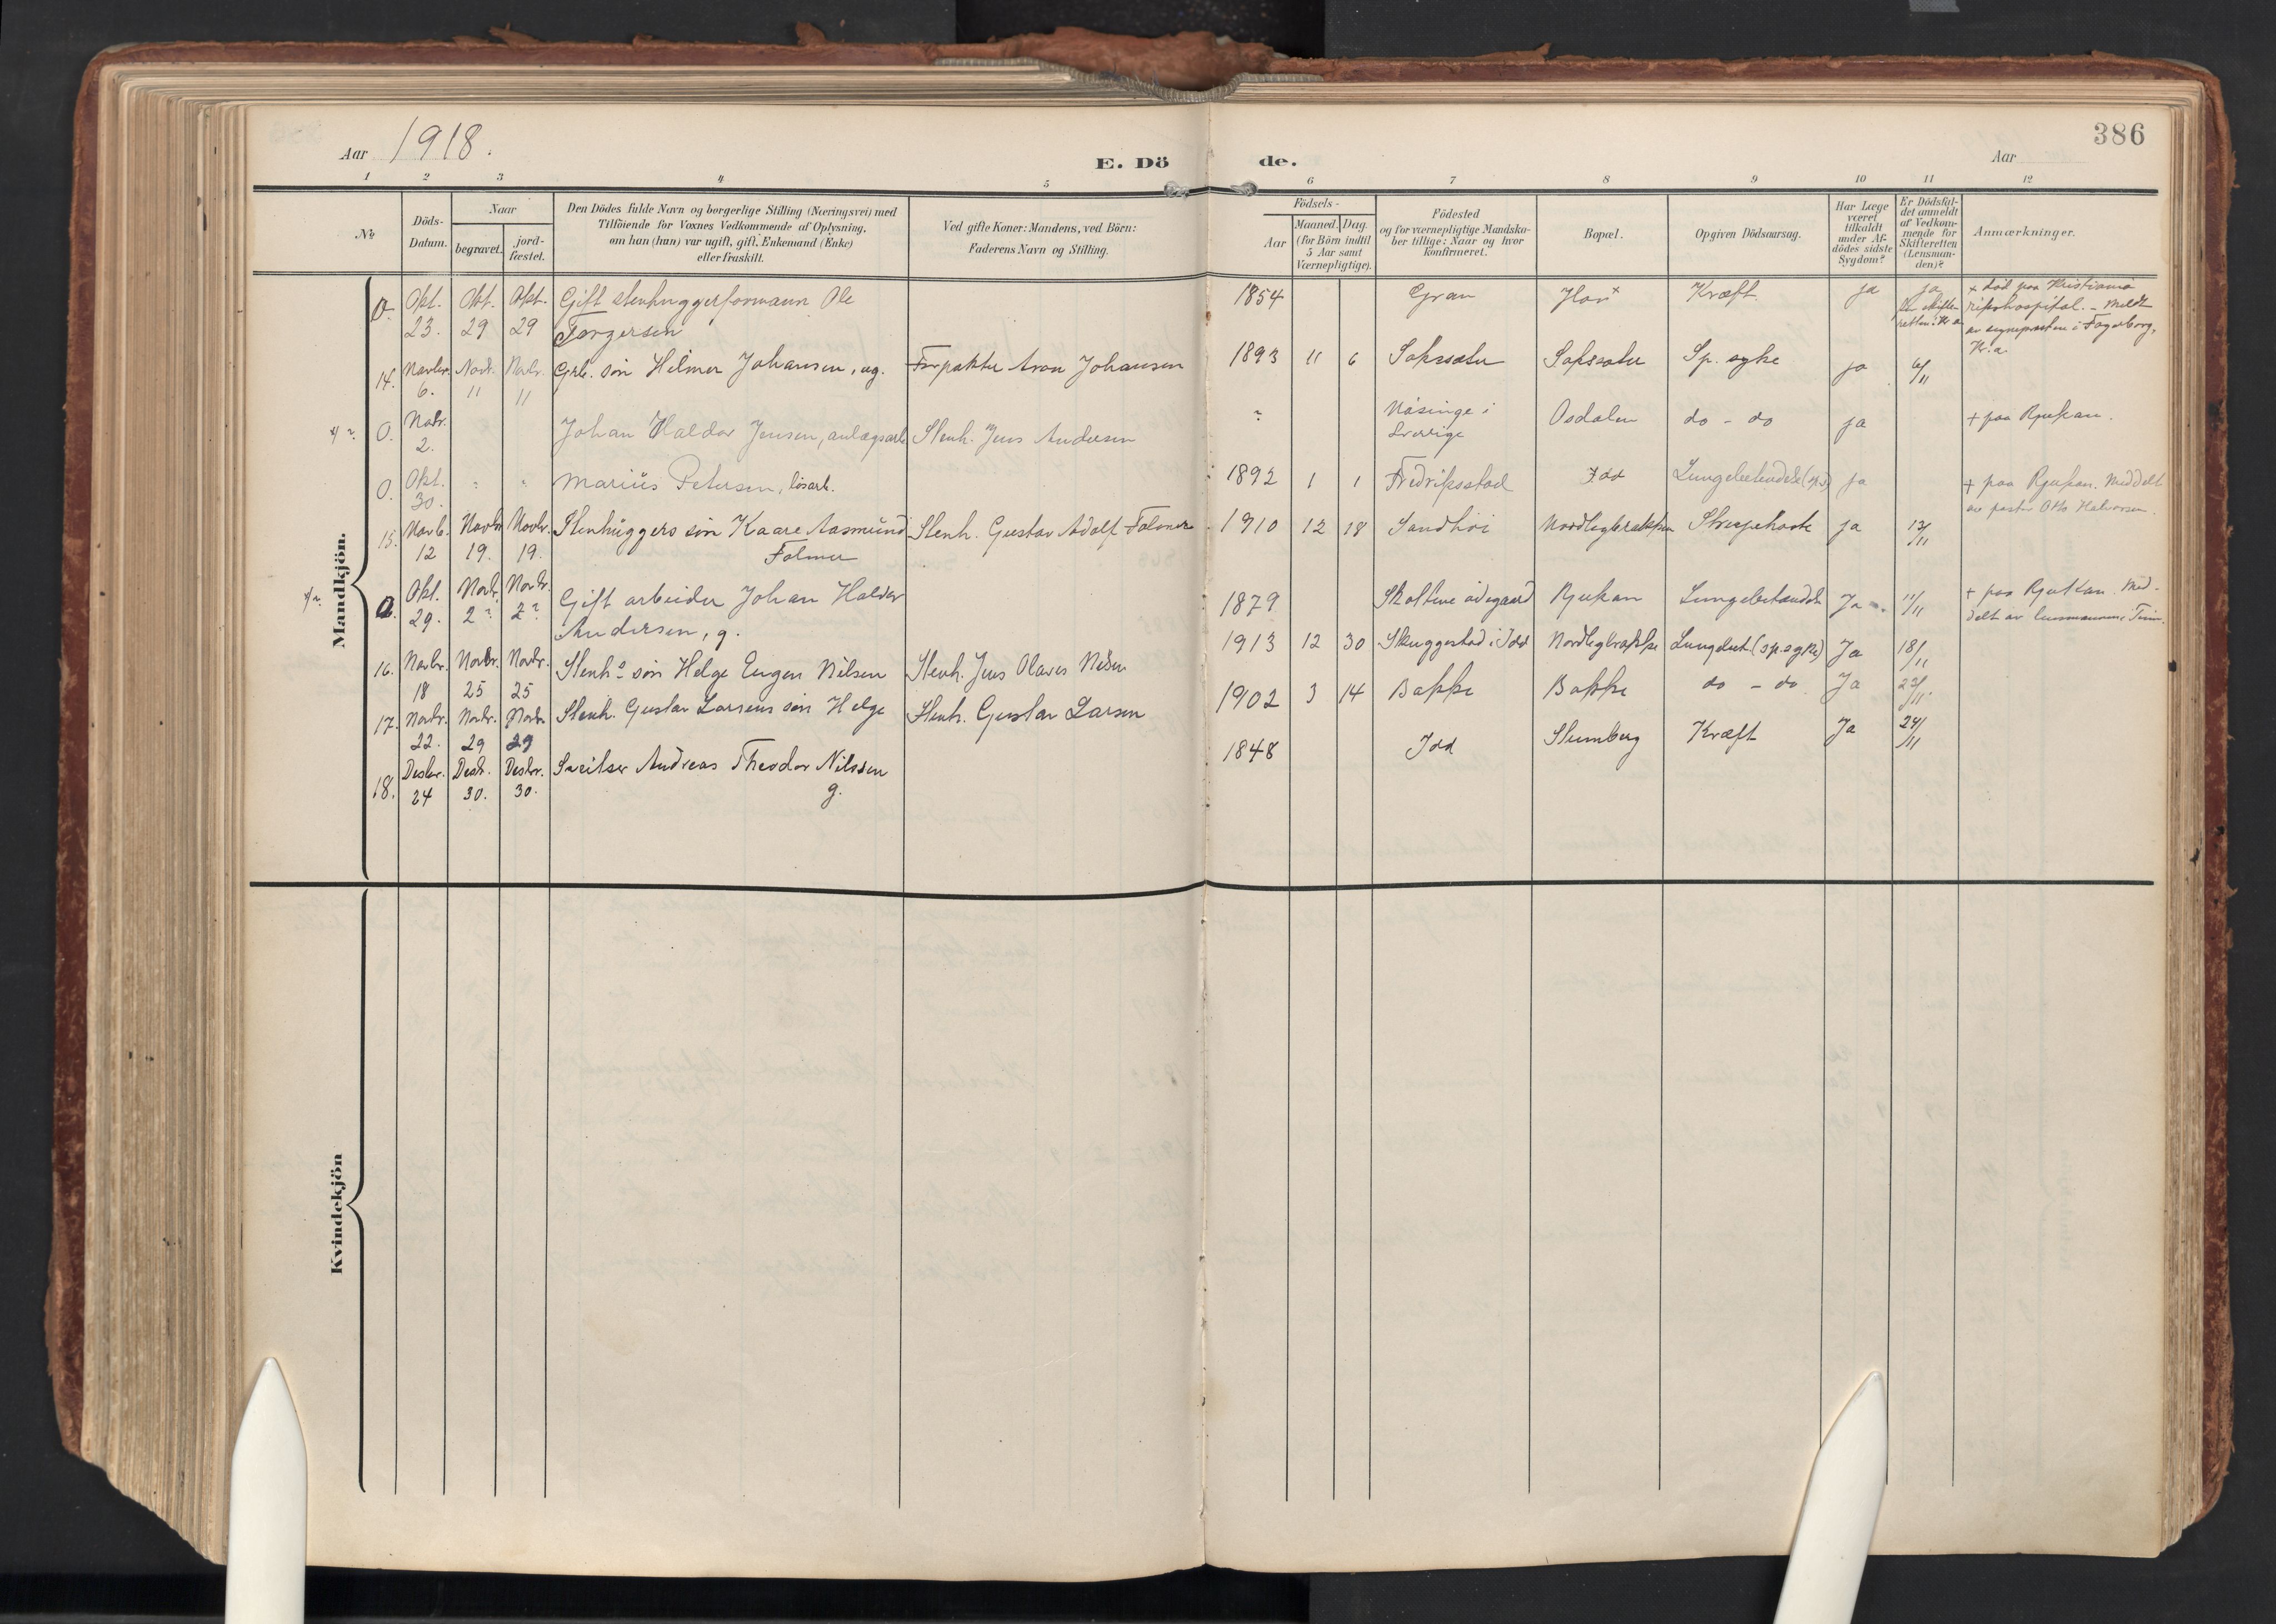 386
Aar 1918.
E. Dö de.
Aar
1 2 3 4 5 6 7 8 9 10 11 12
No.
Döds-
Datum.
Naar
begravet.
jord-
fæstet.
Den Dödes fulde Navn og borgerlige Stilling (Næringsvei) med
Tilföiende for Voxnes Vedkommende af Oplysning,
om han (hun) var ugift, gift, Enkemand (Enke)
eller fraskilt.
Ved gifte Koner: Mandens, ved Börn:
Faderens Navn og Stilling.
Födsels-
Aar
Maaned. Dag.
(for Börn indtil
5 Aar samt
Værnepligtige).
Födested
og for værnepligtige Mandska-
ber tillige: Naar og hvor
konfirmeret.
Bopæl.
Opgiven Dödsaarsag.
Har Læge
været
tilkaldt
under Af-
dödes sidste
Sygdom?
Er Dödsfal-
det anmeldt
af Vedkom-
mende for
Skifteretten
(Lensman-
den)?
Anmærkninger.
Mandkjön.
0. Okt. 23. Okt. 29 Okt. 29 Gift stenhuggerformann Ole
Torgersen
1854 Gran Kræft ja ja
+ död paa Kristiania
rikshospital. - Meldt
av sognepresten i Fagerborg,
Kr.a.
14. Novbr. 6. Novbr. 11 Novbr. 11 Grb. sön Helmer Johansen, ug. Forpakter Aron Johansen 1893 11 6 Sakssæter Sakssæter Sp. syke ja 6/11
0. Novbr. 2. Johan Haldor Jensen, anlægsarb. Stenh. Jens Andersen ? Näsinge i
Sverige Osdalen do - do ja + paa Rjukan.
0. Okt. 30. " " Marius Petersen, lösarb. 1892 1 1 Fredriksstad Idd Lungebetændelse (sp.s) ja + paa Rjukan. Meddelt
av pastor Otto Halvorsen.
15. Novb. 12 Novbr. 19. Novbr. 19. Stenhuggers sön Kaare Aasmund
Folmer Stenh. Gustav Adolf Folmer 1910 12 18 Sandhöi Strupehoste ja 13/11
0. Okt. 29. Novbr. 2? Novbr. 2? Gift arbeider Johan Haldor
Andersen, g. 1879 Skolteve ödegaard Rjukan Lungebetændelse Ja 11/11 + paa Rjukan. Med-
delt av lensmannen i Tinn.
16. Novbr. 18 Novbr. 25 Novbr. 25 Stenhs sön Helge Eugen Nilsen Stenh. Jens Olaves Nilsen 1913 12 30 Skuggestad i Idd Nordlegbrække Lungebet. (sp.syke) Ja 18/11
17. Novbr. 22. Novbr. 29 Novbr. 29 Stenh. Gustav Larsens sön Helge Stenh. Gustav Larsen 1902 3 14 Bakke Bakke do - do Ja 23/11
18. Desbr. 24 Desb. 30. Desbr. 30. Andreas Theodor Nilssen
g. 1848 Idd Stumberg Kræft Ja 24/11
Kvindekjön